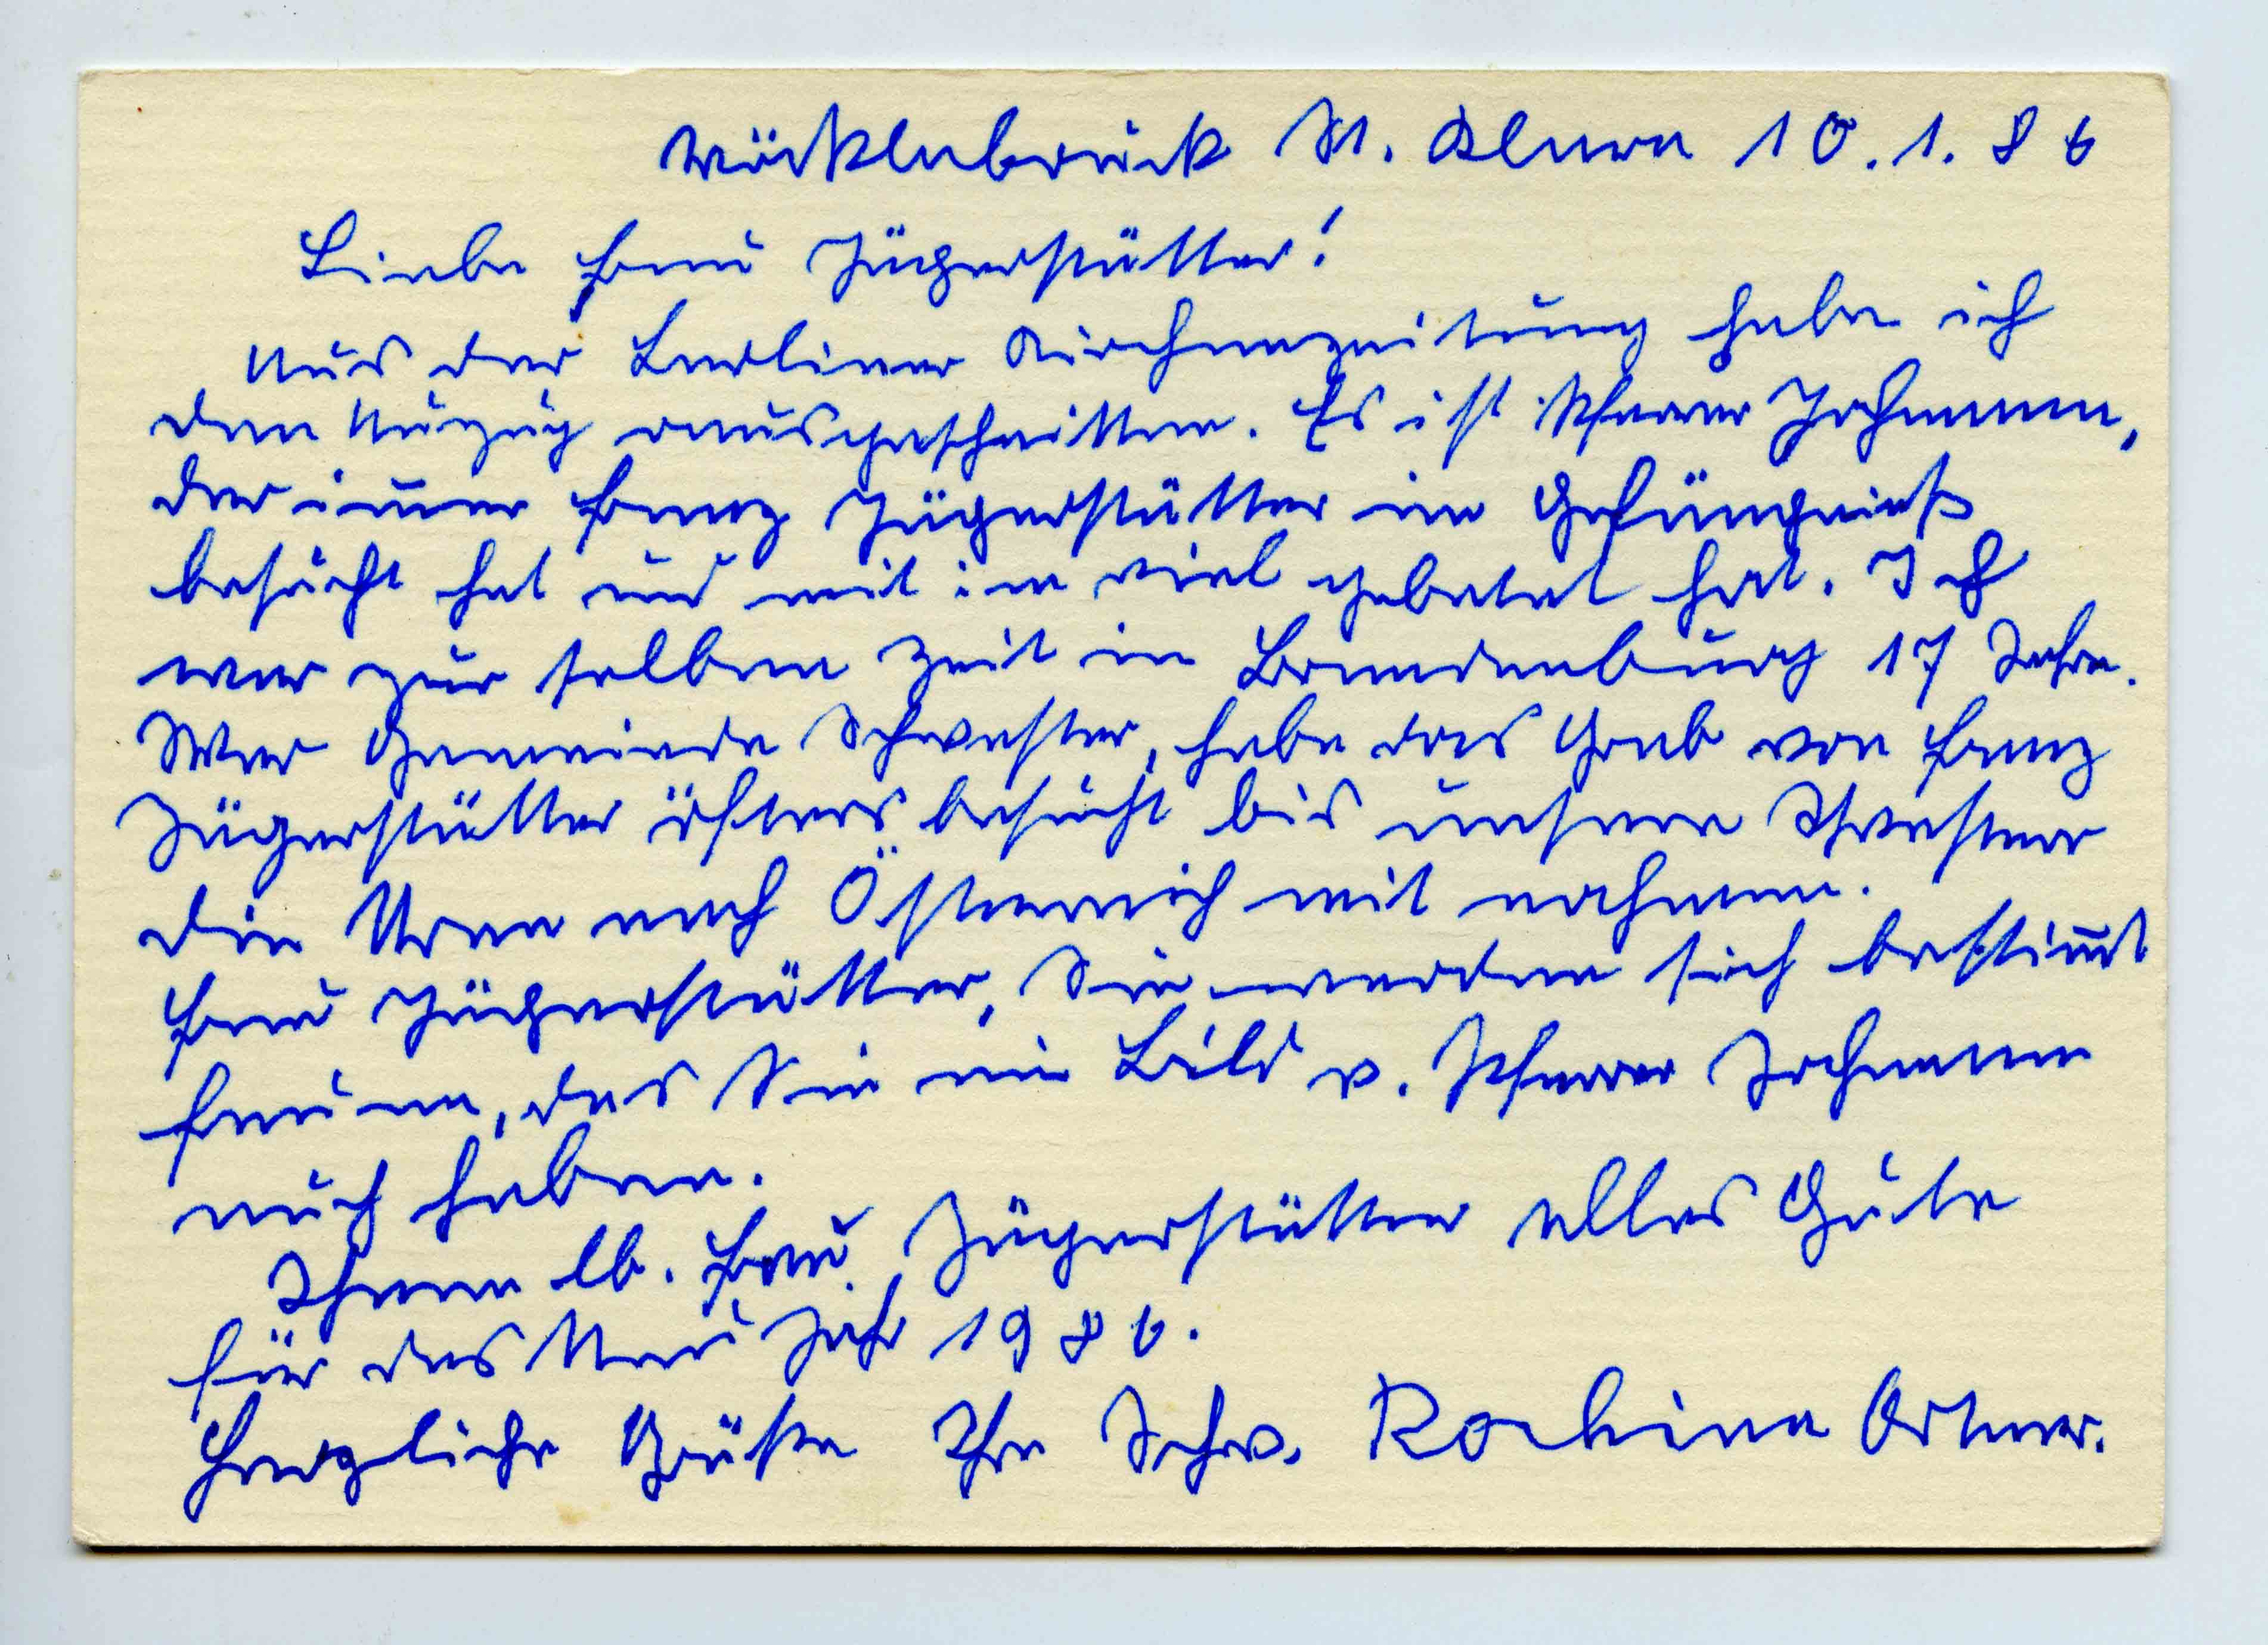 Vöcklabruck St. Klara 10.1.86
Liebe Frau Jägerstätter!
Aus der Berliner Kirchenzeitung habe ich
den Auzug ausgeschnitten. Es ist Pfarrer Jochmann,
der im̄er Franz Jägerstätter im Gefängnieß
besucht hat und mit im viel gebetet hat. Ich
war zur selben Zeit in Brandenburg 17 Jahre.
War Gemeinde Schwester, habe das Grab von Franz
Jägerstätter öfters besucht bis unsere Schwester
die Urne nach Österreich mit nahmen.
Frau Jägerstätter, Sie werden sich bestim̄t
freuen, das Sie ein Bild v. Pfarrer Jochmann
auch haben.
Ihnen lb. Frau Jägerstätter alles Gute
für das Neu Jahr 1986.
Herzliche Grüße Ihre Schw. Ortner.